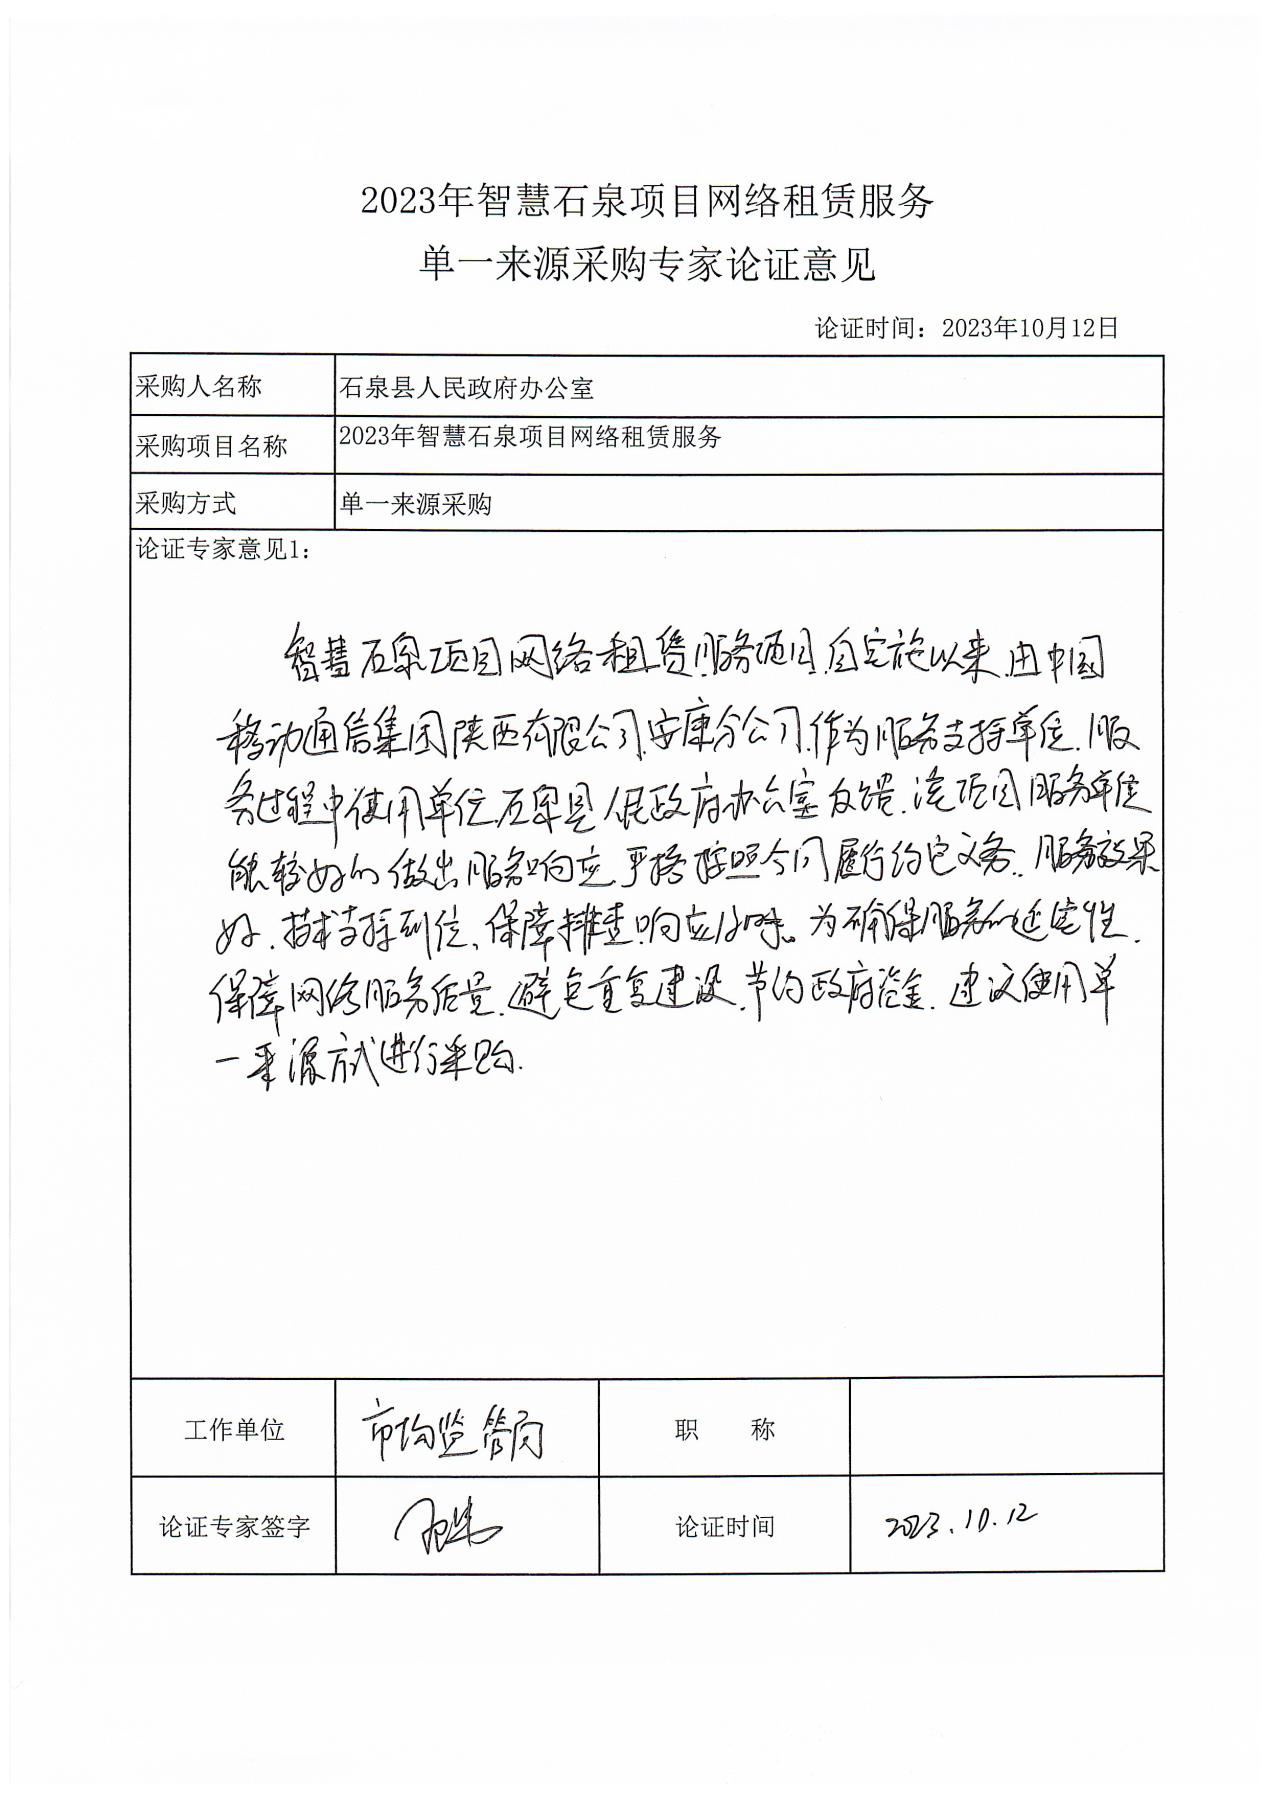 2023年智慧石泉项目网络租赁服务
单一来源采购专家论证意见
论证时间：2023年10月12日
采购人名称 石泉县人民政府办公室
采购项目名称 2023年智慧石泉项目网络租赁服务
采购方式 单一来源采购
论证专家意见1：
智慧石泉项目网络租赁服务项目,自实施以来,由中国
移动通信集团陕西有限公司安康分公司,作为服务支持单位,服
务过程中使用单位石泉县人民政府办公室反馈,该项目服务单位
能较好的做出服务响应,严格按照合同履行约定义务,服务效果
好,技术支持到位、保障排查响应及时。为确保服务的延续性,
保障网络服务质量,避免重复建设,节约政府资金,建议使用单
一来源方式进行采购.
工作单位 市场监管局 职 称
论证专家签字 论证时间 2023.10.12